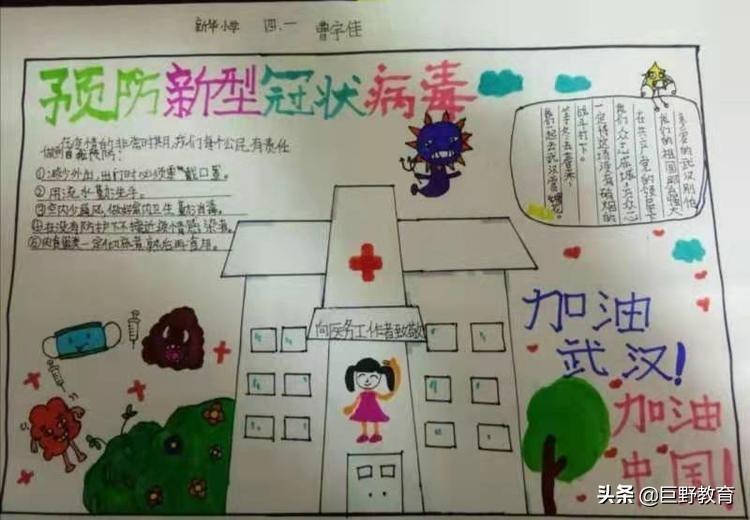 新华小学 四.一 曹宇佳
预防新型冠状病毒
在疫情的非常时期,我们每个公民有责任
做到自我预防!
①减少外出,出门时必须要戴口罩。
②用流水勤洗手。
③室内多通风,做好室内卫生勤消毒。
④在没有防护下不接近疑似感染者。
⑤肉食蛋类一定彻底煮熟后再食用。
亲爱的武汉别怕
我们的祖国那么强大
在共产党的领导下
我们众志成城
一定将这场没有硝烟的
战斗打下。
等冬去春来,
去武汉赏樱花。
向医务工作者致敬
加油
武汉!
加油
中国!
头条 @巨野教育